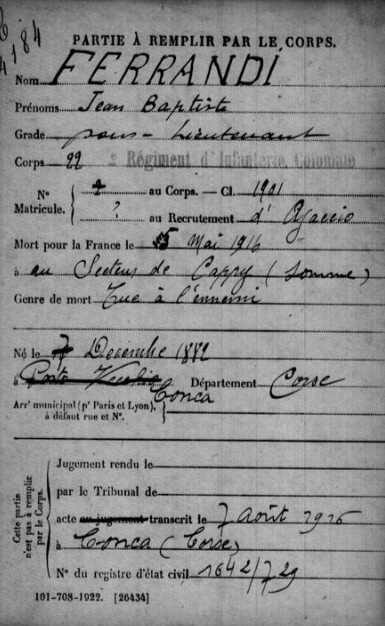 4184
PARTIE À REMPLIR PAR LE CORPS.
Nom FERRANDI
Prénoms Jean Baptiste
Grade sous-Lieutenant
Corps 22e Régiment d'Infanterie Coloniale
N° Matricule. { ? au Corps. — Cl. 1901
? au Recrutement d'Ajaccio
Mort pour la France le 5 Mai 1916
à au Secteur de Cappy (Somme)
Genre de mort Tué à l'ennemi
Né le 7 Decembre 1882
à Porto Vecchio Conca Département Corse
Arr' municipal (p' Paris et Lyon), à défaut rue et N°.
Cette partie n'est pas à remplir par le Corps.
Jugement rendu le
par le Tribunal de
acte au jugement transcrit le 7 Août 1916
à Conca (Corse)
N° du registre d'état civil 1642/729
101-708-1922. [26434]